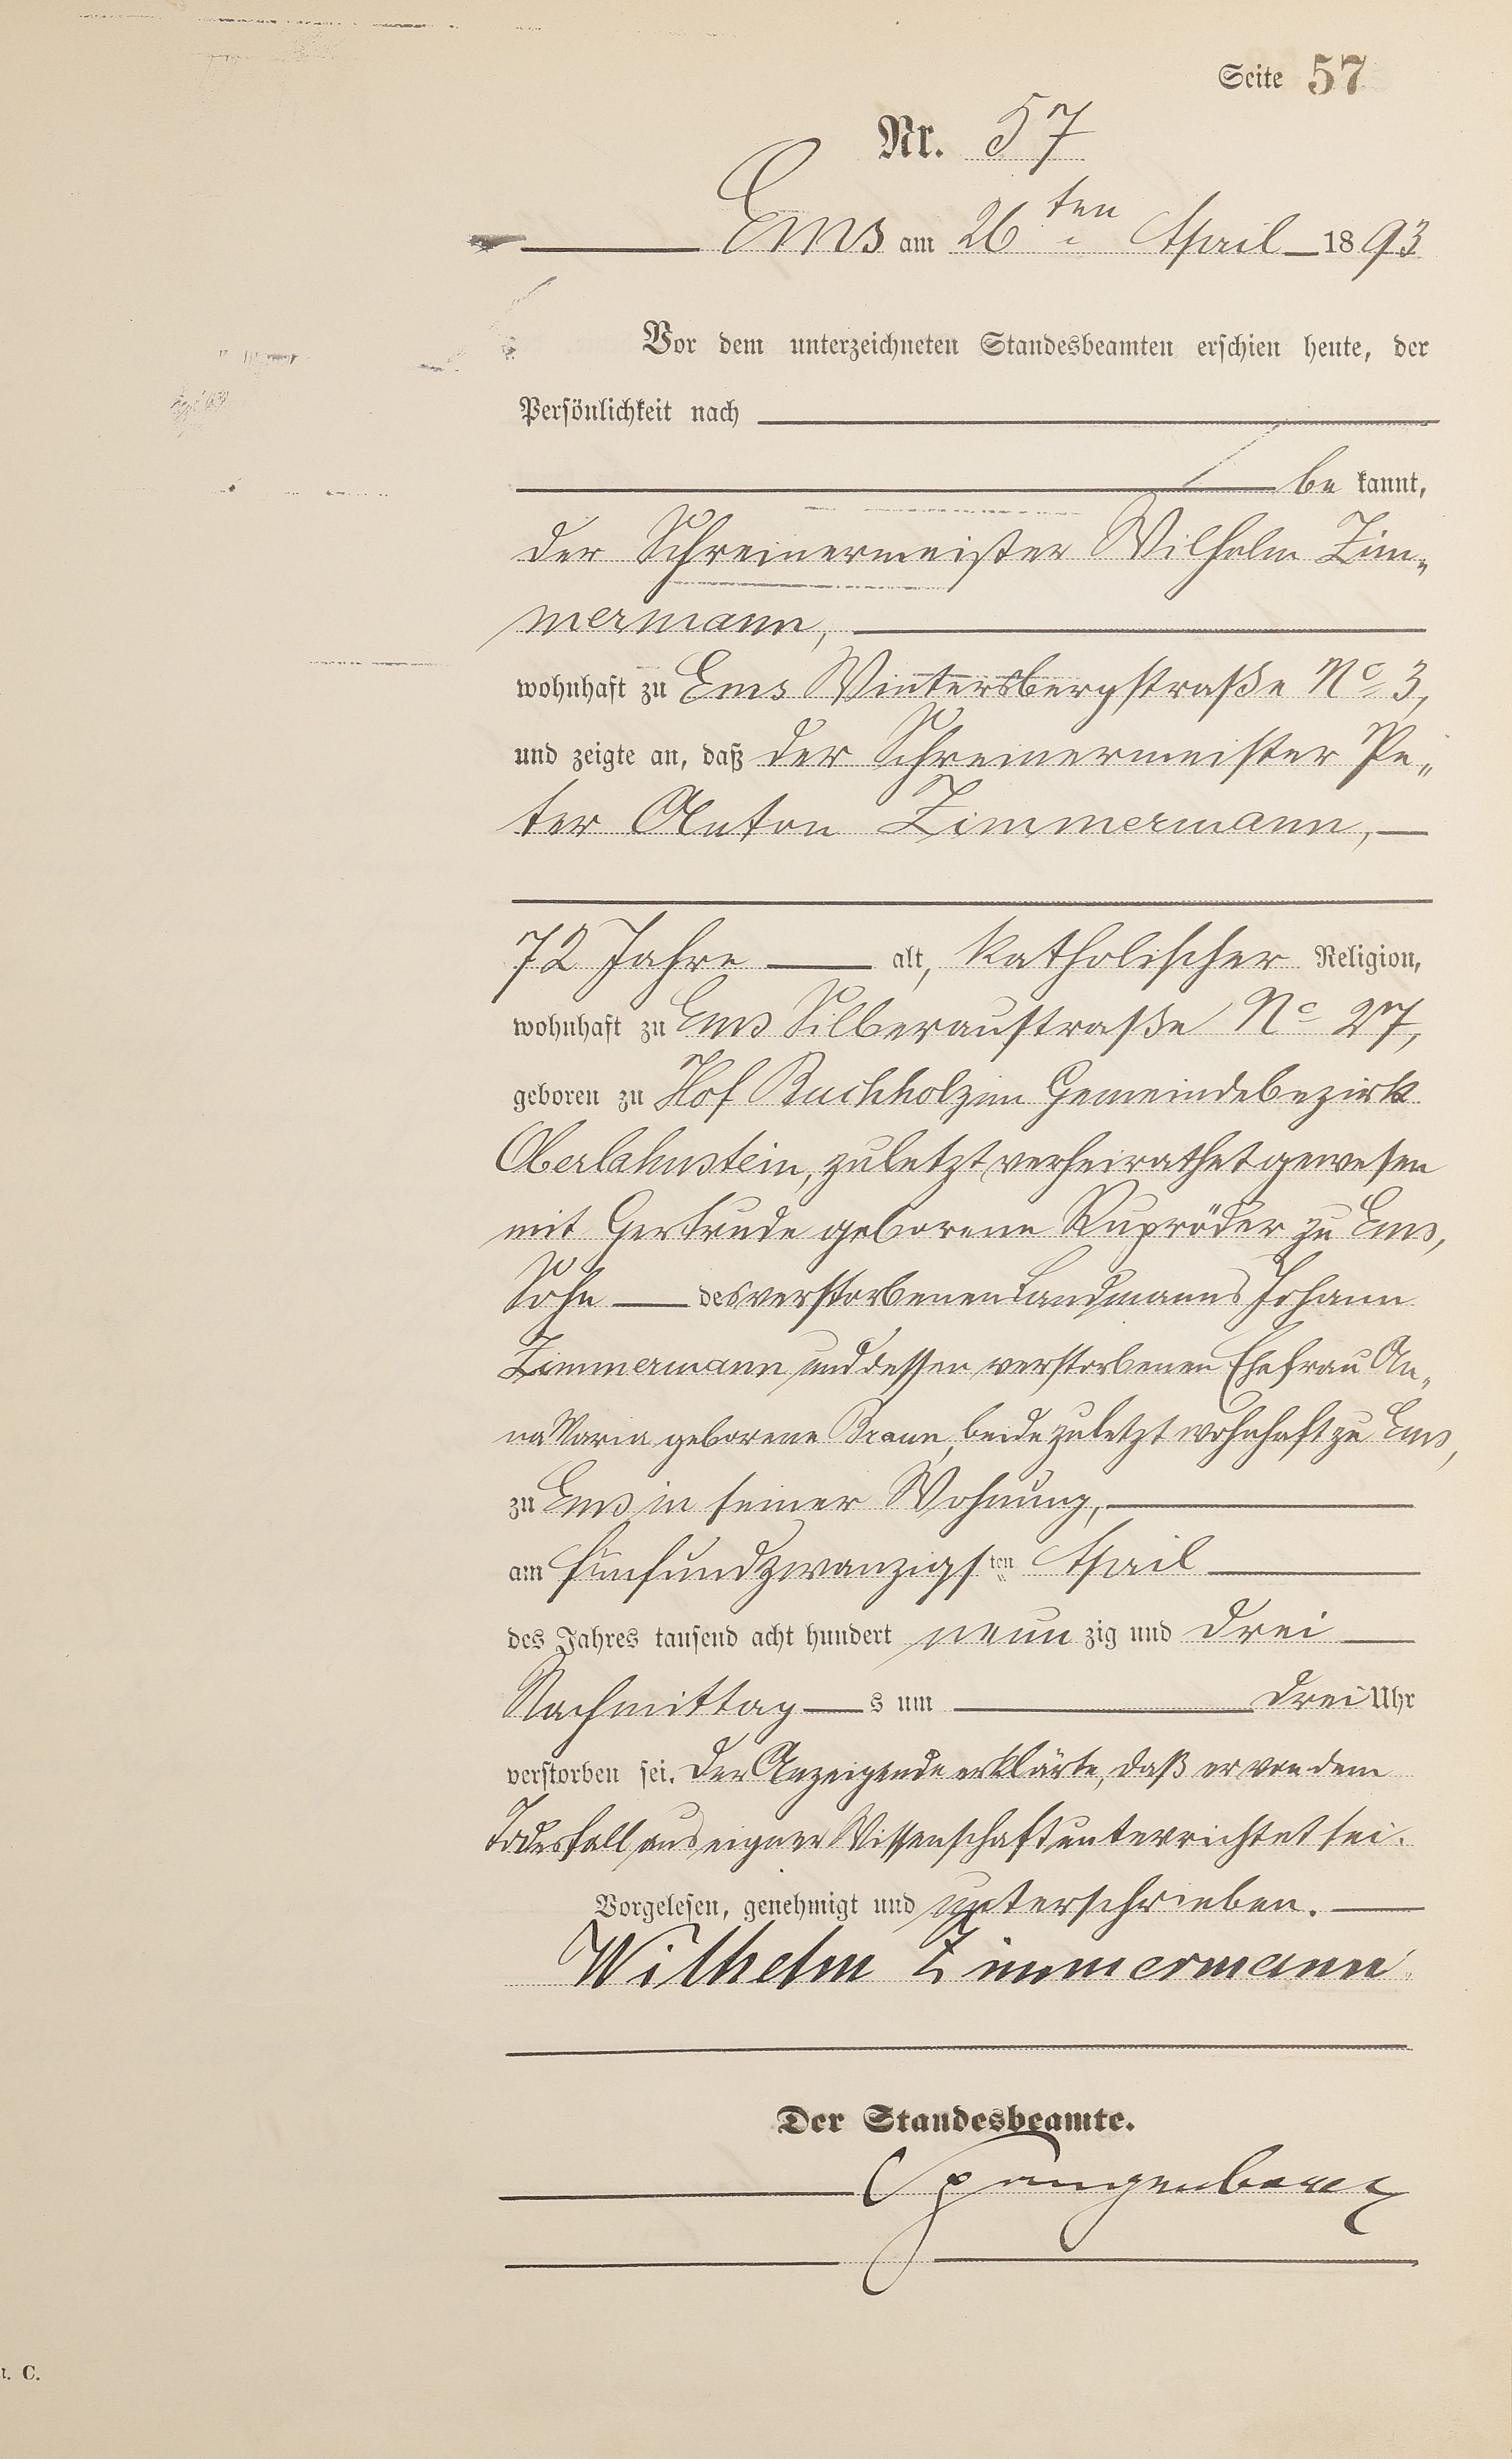 Seite 57
Nr. 57
Ems am 26ten April 1893
Vor dem unterzeichneten Standesbeamten erschien heute, der
Persönlichkeit nach
be kannt,
der Schreinermeister Wilhelm Zim„
mermann,
wohnhaft zu Ems Wintersbergstraße No 3,
und zeigte an, daß der Schreinermeister Pe„
ter Anton Zimmermann,
72 Jahre alt, katholischer Religion,
wohnhaft zu Ems Silberaustraße No 27,
geboren zu Hof Buchholz im Gemeindebezirk
Oberlahnstein, zuletzt verheirathet gewesen
mit Gertrude geborene Rupröder zu Ems,
Sohn des verstorbenen Landmanns Johann
Zimmermann und dessen verstorbenen Ehefrau An„
na Maria geborene Braun, beide zuletzt wohnhaft zu Ems,
zu Ems in seiner Wohnung,
am fünfundzwanzigsten April
des Jahres tausend acht hundert neun zig und drei
Nachmittag s um drei Uhr
verstorben sei. Der Anzeigende erklärte, daß er von dem
Todesfall aus eigner Wissenschaft unterrichtet sei.
Vorgelesen, genehmigt und unterschrieben.
Wilhelm Zimmermann
Der Standesbeamte.
Spangenberg
C.